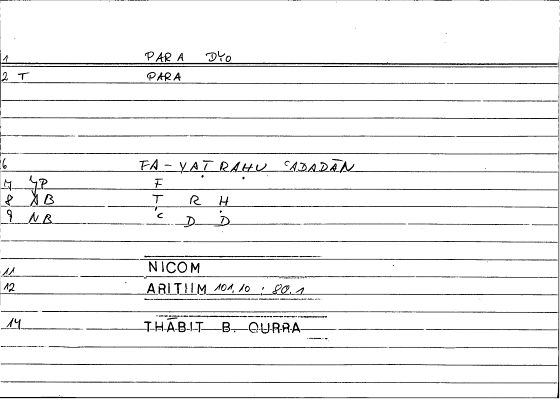 1 PARA DYO
2 T PARA
6 FA-YAṬRAḤU ʿADADĀN
7 YP F
8 AB Ṭ R Ḥ
9 NB ʿ D D
11 NICOM
12 ARITIIM 101,10 : 80.1
14 THĀBIT B. QURRA